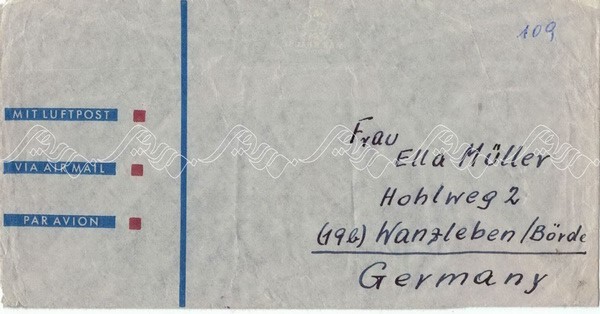 109
MIT LUFTPOST
VIA AIR MAIL
PAR AVION
Frau
Ella Müller
Hohlweg 2
(19b) Wanzleben/Börde
Germany